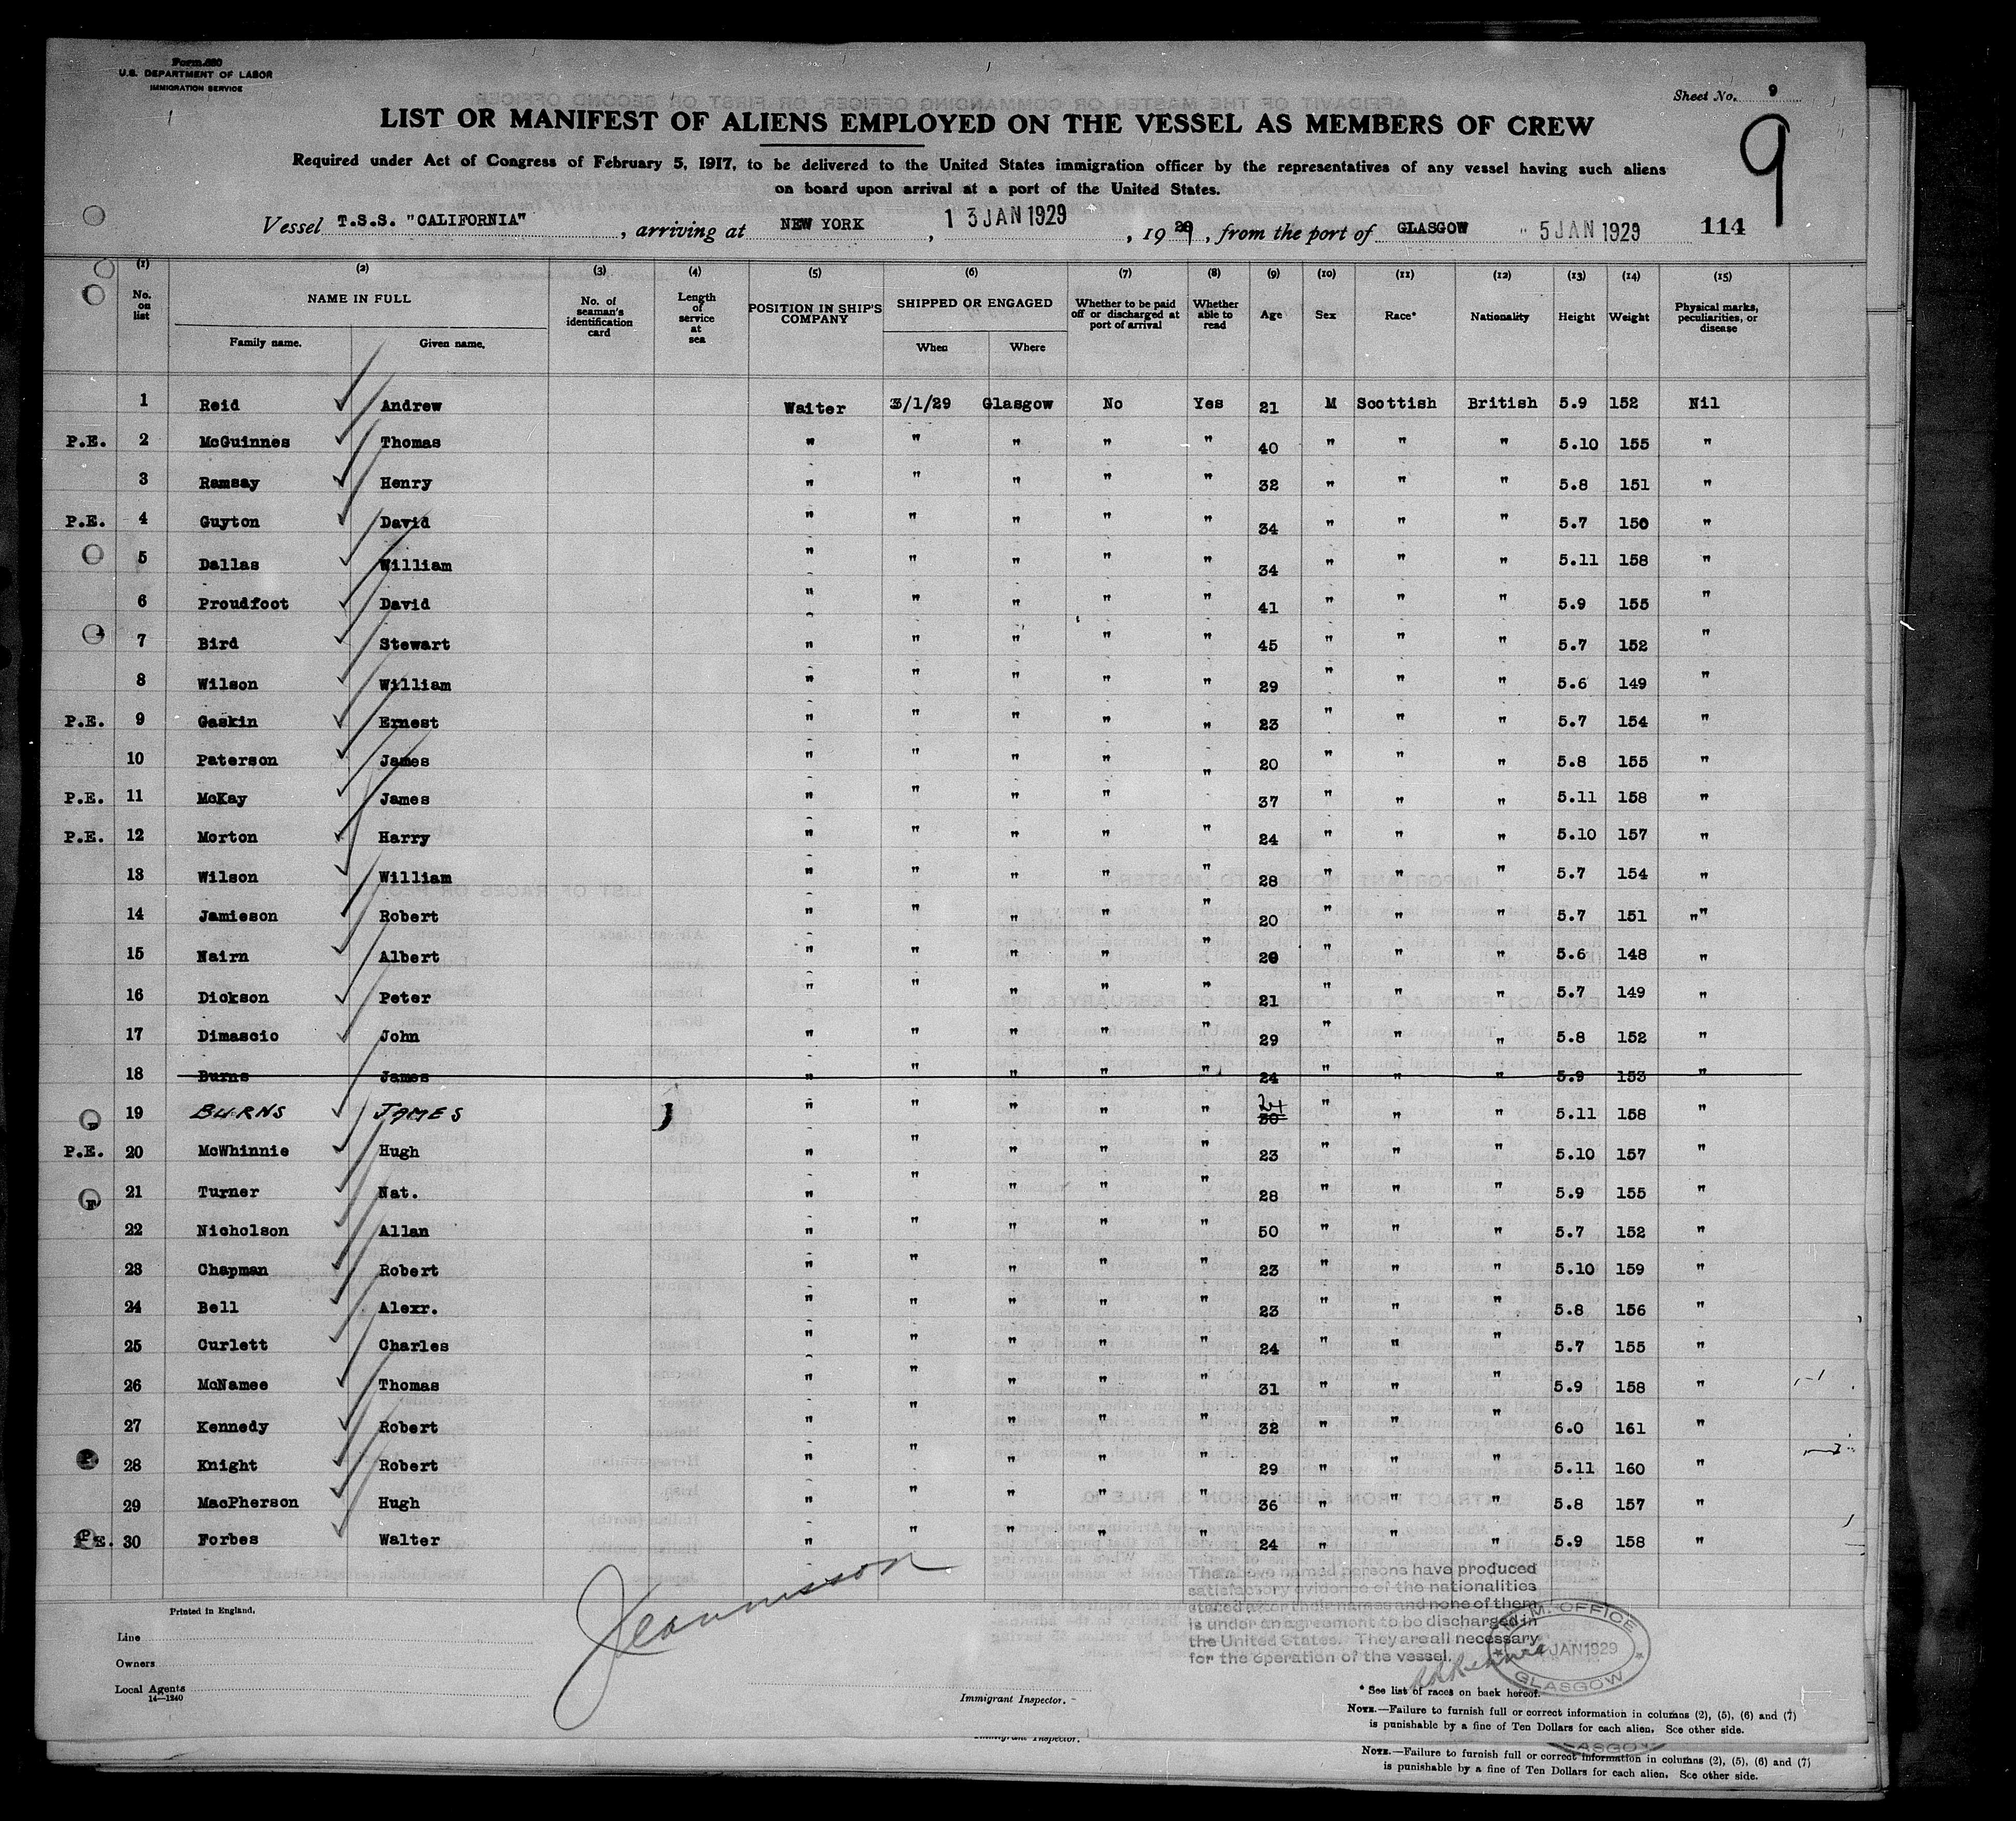 Form 680
U.S. DEPARTMENT OF LABOR
IMMIGRATION SERVICE
Sheet No. 9
9
LIST OR MANIFEST OF ALIENS EMPLOYED ON THE VESSEL AS MEMBERS OF CREW
Required under Act of Congress of February 5, 1917, to be delivered to the United States immigration officer by the representatives of any vessel having such aliens
on board upon arrival at a port of the United States.
Vessel T.S.S. "CALIFORNIA", arriving at NEW YORK, 13 JAN 1929, 1929, from the port of GLASGOW 5 JAN 1929 114
(1) (2) (3) (4) (5) (6) (7) (8) (9) (10) (11) (12) (13) (14) (15)
No. on list NAME IN FULL No. of seaman's identification card Length of service at sea POSITION IN SHIP'S COMPANY SHIPPED OR ENGAGED Whether to be paid off or discharged at port of arrival Whether able to read Age Sex Race* Nationality Height Weight Physical marks, peculiarities, or disease
Family name. Given name. When Where
1 Reid Andrew Waiter 3/1/29 Glasgow No Yes 21 M Scottish British 5.9 152 Nil
P.E. 2 McGuinnes Thomas " " " " " 40 " " " 5.10 155 "
3 Ramsay Henry " " " " " 32 " " " 5.8 151 "
P.E. 4 Guyton David " " " " " 34 " " " 5.7 150 "
5 Dallas William " " " " " 34 " " " 5.11 158 "
6 Proudfoot David " " " " " 41 " " " 5.9 155 "
7 Bird Stewart " " " " " 45 " " " 5.7 152 "
8 Wilson William " " " " " 29 " " " 5.6 149 "
P.E. 9 Gaskin Ernest " " " " " 23 " " " 5.7 154 "
10 Paterson James " " " " " 20 " " " 5.8 155 "
P.E. 11 McKay James " " " " 37 " " " 5.11 158 "
P.E. 12 Morton Harry " " " " " 24 " " " 5.10 157 "
13 Wilson William " " " " " 28 " " " 5.7 154 "
14 Jamieson Robert " " " " " 20 " " " 5.7 151 ""
15 Nairn Albert " " " " " 20 " " " 5.6 148 "
16 Dickson Peter " " " " " 21 " " " 5.7 149 "
17 Dimascio John " " " " " 29 " " " 5.8 152 "
18 Burns James " " " " " 24 " " " 5.9 153 "
19 BURNS JAMES " " " " " 24 30 " " " 5.11 158 "
P.E. 20 McWhinnie Hugh " " " " " 23 " " " 5.10 157 "
21 Turner Nat. " " " " " 28 " " " 5.9 155 "
22 Nicholson Allan " " " " " 50 " " " 5.7 152 "
23 Chapman Robert " " " " " 23 " " " 5.10 159 "
24 Bell Alexr. " " " " " 23 " " " 5.8 156 "
25 Curlett Charles " " " " " 24 " " " 5.7 155 "
26 McNamee Thomas " " " " " 31 " " " 5.9 158 "
27 Kennedy Robert " " " " " 32 " " " 6.0 161 "
28 Knight Robert " " " " " 29 " " " 5.11 160 "
29 MacPherson Hugh " " " " " 36 " " " 5.8 157 "
P.E. 30 Forbes Walter " " " " " 24 " " 5.9 158 "
The above named persons have produced
satisfactory evidence of the nationalities
stated after their names and none of them
is under an agreement to be discharged in
the United States. They are all necessary
for the operation of the vessel.
IMM. OFFICE
JAN 1929
GLASGOW
Printed in England.
Line
Owners
Local Agents
14—1240
Immigrant Inspector.
* See list of races on back hereof.
NOTE.—Failure to furnish full or correct information in columns (2), (5), (6) and (7)
is punishable by a fine of Ten Dollars for each alien. See other side.
Immigrant Inspector.
NOTE.—Failure to furnish full or correct information in columns (2), (5), (6) and (7)
is punishable by a fine of Ten Dollars for each alien. See other side.